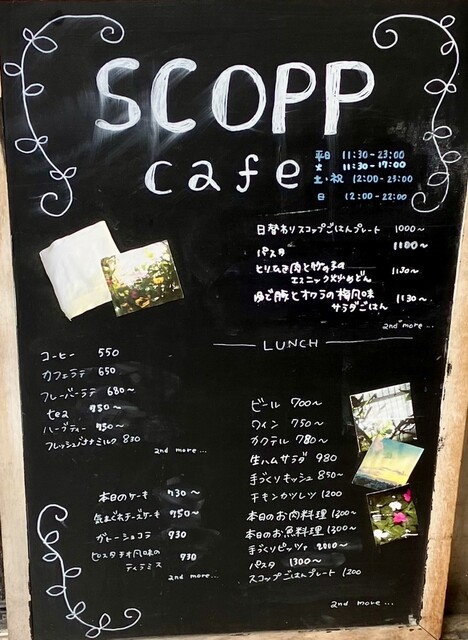 SCOPP
cafe
平日 11:30-23:00
火 11:30-17:00
土・祝 12:00-23:00
日 12:00-22:00
日替わりスコップごはんプレート 1000〜
パスタ 1100〜
とりひき肉と竹の子の
エスニック炒めどん 1130〜
ゆで豚とオクラの梅風味
サラダごはん 1130〜
and more...
LUNCH
コーヒー 550
カフェラテ 650
フレーバーラテ 680〜
tea 750〜
ハーブティー 750〜
フレッシュバナナミルク 830
and more...
本日のケーキ 730〜
気まぐれチーズケーキ 750〜
ガトーショコラ 730
ピスタチオ風味の
ティラミス 730
and more...
ビール 700〜
ワイン 750〜
カクテル 780〜
生ハムサラダ 980
手づくりキッシュ 850〜
チキンカツレツ 1200
本日のお肉料理 1300〜
本日のお魚料理 1300〜
手づくりピッツァ 〜
パスタ 1300〜
スコップごはんプレート 1200
and more...